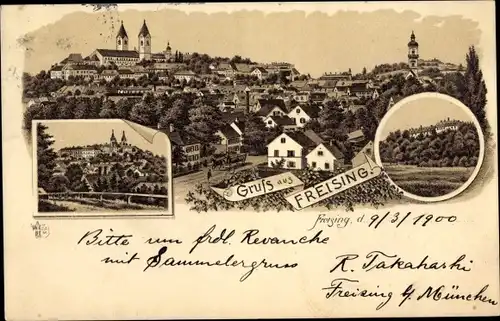 Gruss aus
FREISING.
Freising, d. 9/3/1900
Bitte um frdl. Revanche
mit Sammelergruss
R. Takahashi
Freising b/ München